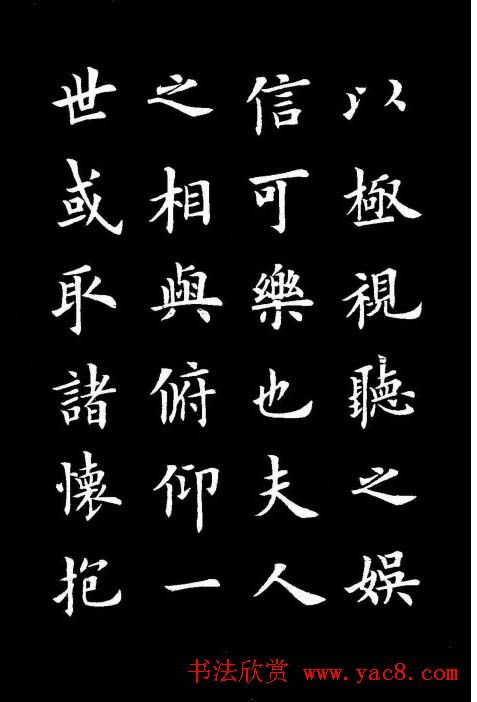 以極視聽之娛
信可樂也夫人
之相與俯仰一
世或取諸懷抱
书法欣赏 www.yac8.com